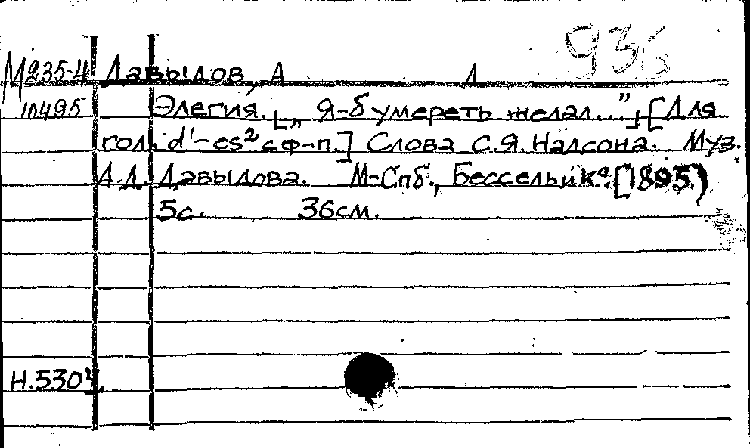 935
М235-4 Давыдов, А Д
10495 Элегия. [„Я-б умереть желал..."] [Для
гол. d'-es² с ф-п.] Слова С.Я. Надсона. Муз.
А.Д. Давыдова. М-Спб., Бессель и Кº. [1895]
5с. 36см.
Н.5304